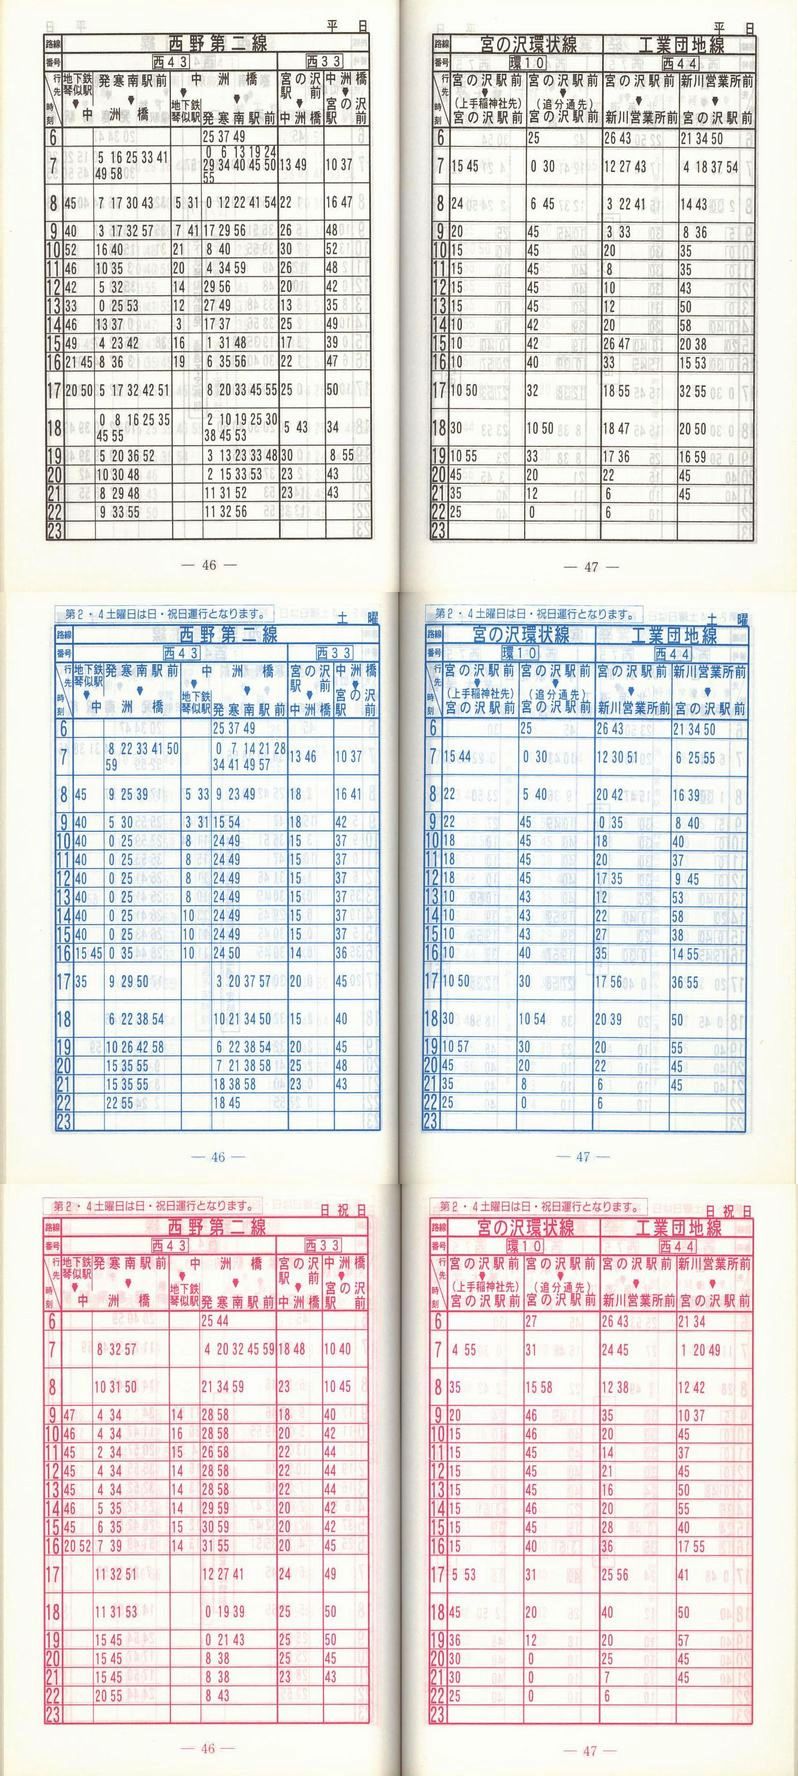 平 日
路線 西野第二線
番号 西43 西33
行先 時刻 地下鉄琴似駅 ▼ 中洲橋 発寒南駅前 中洲橋 ▼ 地下鉄琴似駅 発寒南駅前 宮の沢駅前 ▼ 中洲橋 中洲橋 ▼ 宮の沢駅前
6 25 37 49
7 5 16 25 33 41 49 58 0 6 13 19 24 29 34 40 45 50 55 13 49 10 37
8 45 7 17 30 43 5 31 0 12 22 41 54 22 16 47
9 40 3 17 32 57 7 41 17 29 56 26 48
10 52 16 40 21 8 40 30 52
11 46 10 35 20 4 34 59 26 48
12 42 5 32 14 29 56 20 42
13 33 0 25 53 12 27 49 13 35
14 46 13 37 3 17 37 25 49
15 49 4 23 42 16 1 31 48 17 39
16 21 45 8 36 19 6 35 56 22 47
17 20 50 5 17 32 42 51 8 20 33 45 55 25 50
18 0 8 16 25 35 45 55 2 10 19 25 30 38 45 53 5 43 34
19 5 20 36 52 3 13 23 33 48 30 8 55
20 10 30 48 2 15 33 53 23 43
21 8 29 48 11 31 52 23 43
22 9 33 55 11 32 56
23
— 46 —
平 日
路線 宮の沢環状線 工業団地線
番号 環10 西44
行先 時刻 宮の沢駅前 ▼ (上手稲神社先) 宮の沢駅前 宮の沢駅前 ▼ (追分通先) 宮の沢駅前 宮の沢駅前 ▼ 新川営業所前 新川営業所前 ▼ 宮の沢駅前
6 25 26 43 21 34 50
7 15 45 0 30 12 27 43 4 18 37 54
8 24 6 45 3 22 41 14 43
9 20 45 3 33 8 36
10 15 45 20 35
11 15 45 8 35
12 15 45 10 43
13 15 45 12 50
14 10 42 20 58
15 10 42 26 47 20 38
16 10 40 33 15 53
17 10 50 32 18 55 32 55
18 30 10 50 18 47 20 50
19 10 55 33 17 36 16 59
20 45 20 22 45
21 35 12 6 45
22 25 0 6
23
— 47 —
第2・4土曜日は日・祝日運行となります。
土 曜
路線 西野第二線
番号 西43 西33
行先 時刻 地下鉄琴似駅 ▼ 中洲橋 発寒南駅前 中洲橋 ▼ 地下鉄琴似駅 発寒南駅前 宮の沢駅前 ▼ 中洲橋 中洲橋 ▼ 宮の沢駅前
6 25 37 49
7 8 22 33 41 50 59 0 7 14 21 28 34 41 49 57 13 46 10 37
8 45 9 25 39 5 33 9 23 49 18 16 41
9 40 5 30 3 31 15 54 18 42
10 40 0 25 8 24 49 15 37
11 40 0 25 8 24 49 15 37
12 40 0 25 8 24 49 15 37
13 40 0 25 8 24 49 15 37
14 40 0 25 10 24 49 15 37
15 40 0 25 10 24 49 15 37
16 15 45 0 35 10 24 50 14 36
17 35 9 29 50 3 20 37 57 20 45
18 6 22 38 54 10 21 34 50 15 40
19 10 26 42 58 6 22 38 54 20 45
20 15 35 55 7 21 38 58 25 48
21 15 35 55 18 38 58 23 43
22 22 55 18 45
23
— 46 —
第2・4土曜日は日・祝日運行となります。
土 曜
路線 宮の沢環状線 工業団地線
番号 環10 西44
行先 時刻 宮の沢駅前 ▼ (上手稲神社先) 宮の沢駅前 宮の沢駅前 ▼ (追分通先) 宮の沢駅前 宮の沢駅前 ▼ 新川営業所前 新川営業所前 ▼ 宮の沢駅前
6 25 26 43 21 34 50
7 15 44 0 30 12 30 51 6 25 55
8 22 5 40 20 42 16 39
9 22 45 0 35 8 40
10 18 45 18 40
11 18 45 20 37
12 18 45 17 35 9 45
13 10 43 12 53
14 10 43 22 58
15 10 43 27 38
16 10 40 35 14 55
17 10 50 30 17 56 36 55
18 30 10 54 20 39 50
19 10 57 30 20 55
20 45 20 22 45
21 35 8 6 45
22 25 0 6
23
— 47 —
第2・4土曜日は日・祝日運行となります。
日 祝 日
路線 西野第二線
番号 西43 西33
行先 時刻 地下鉄琴似駅 ▼ 中洲橋 発寒南駅前 中洲橋 ▼ 地下鉄琴似駅 発寒南駅前 宮の沢駅前 ▼ 中洲橋 中洲橋 ▼ 宮の沢駅前
6 25 44
7 8 32 57 4 20 32 45 59 18 48 10 40
8 10 31 50 21 34 59 23 10 45
9 47 4 34 14 28 58 18 40
10 46 4 34 16 28 58 20 42
11 45 2 34 15 26 58 22 44
12 45 4 34 14 28 58 22 44
13 45 4 34 14 28 58 22 44
14 46 5 35 14 29 59 20 42
15 45 6 35 15 30 59 20 42
16 20 52 7 39 14 31 55 20 45
17 11 32 51 12 27 41 24 49
18 11 31 53 0 19 39 25 50
19 15 45 0 21 43 25 50
20 15 45 8 38 25 45
21 15 45 8 38 23 43
22 20 55 8 43
23
— 46 —
第2・4土曜日は日・祝日運行となります。
日 祝 日
路線 宮の沢環状線 工業団地線
番号 環10 西44
行先 時刻 宮の沢駅前 ▼ (上手稲神社先) 宮の沢駅前 宮の沢駅前 ▼ (追分通先) 宮の沢駅前 宮の沢駅前 ▼ 新川営業所前 新川営業所前 ▼ 宮の沢駅前
6 27 26 43 21 34
7 4 55 31 24 45 1 20 49
8 35 15 58 12 38 12 42
9 20 46 35 10 37
10 15 46 20 45
11 15 45 14 37
12 15 45 21 45
13 15 45 16 50
14 15 46 20 55
15 15 45 28 40
16 15 40 36 17 55
17 5 53 31 25 56 41
18 45 20 40 50
19 36 12 20 57
20 30 0 25 45
21 30 0 7 45
22 25 0 6
23
— 47 —